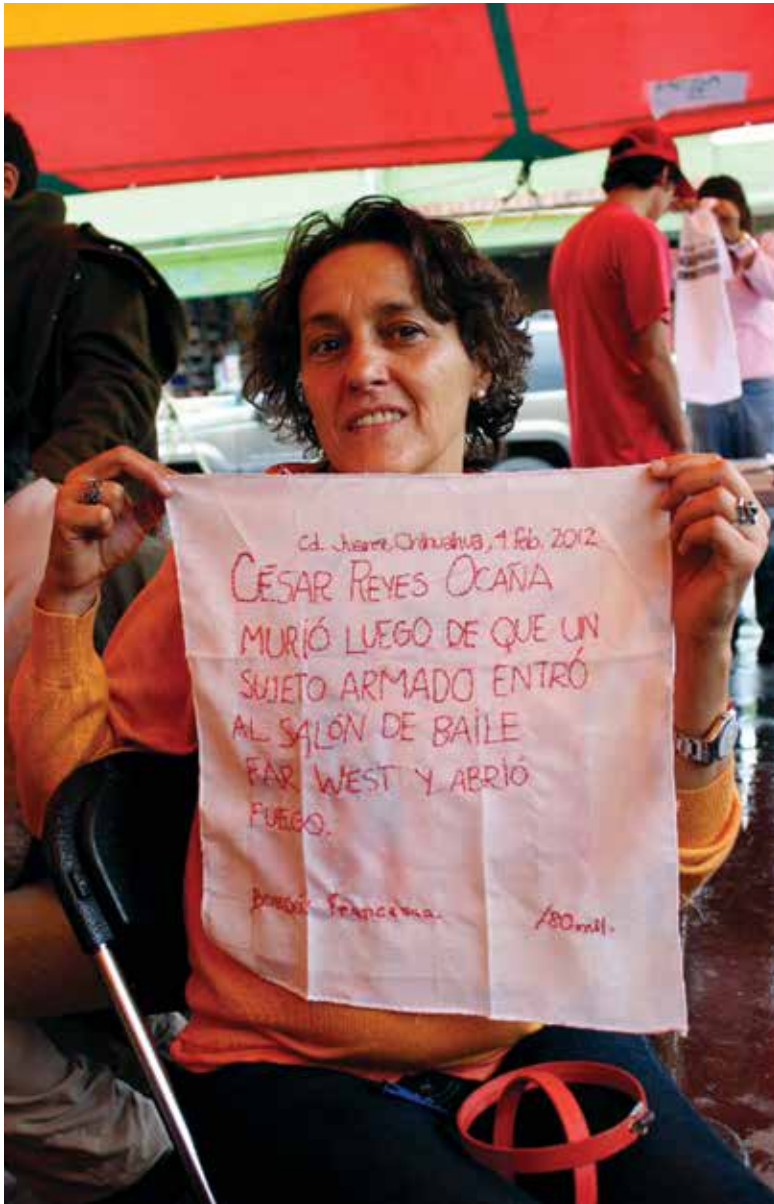 Cd. Juarez Chihuahua, 4 Feb. 2012
CÉSAR REYES OCAÑA
MURIÓ LUEGO DE QUE UN
SUJETO ARMADO ENTRÓ
AL SALÓN DE BAILE
FAR WEST Y ABRIÓ
FUEGO.
Francesca. /80mil.